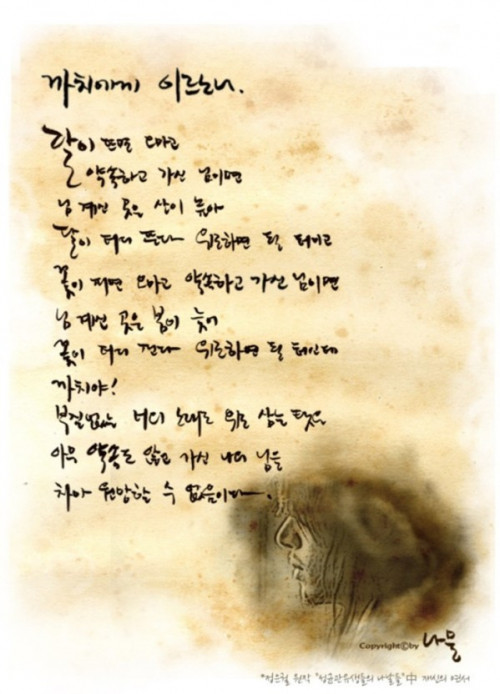 까치에게 이르노니.
달이 뜨면 오마고
약속하고 가신 님이면
님 계신 곳은 산이 높아
달이 더디 뜬다 위로하면 될 터이고
꽃이 지면 오마고 약속하고 가신 님이면
님 계신 곳은 봄이 늦어
꽃이 더디 진다 위로하면 될 터인데
까치야!
부질없는 너의 노래로 위로 삼는 탓은
아무 약속도 않고 가신 나의 님을
차마 원망할 수 없음이다.
Copyrightⓒby 나물
"정은궐 원작 "성균관유생들의 나날들"中 재신의 연서